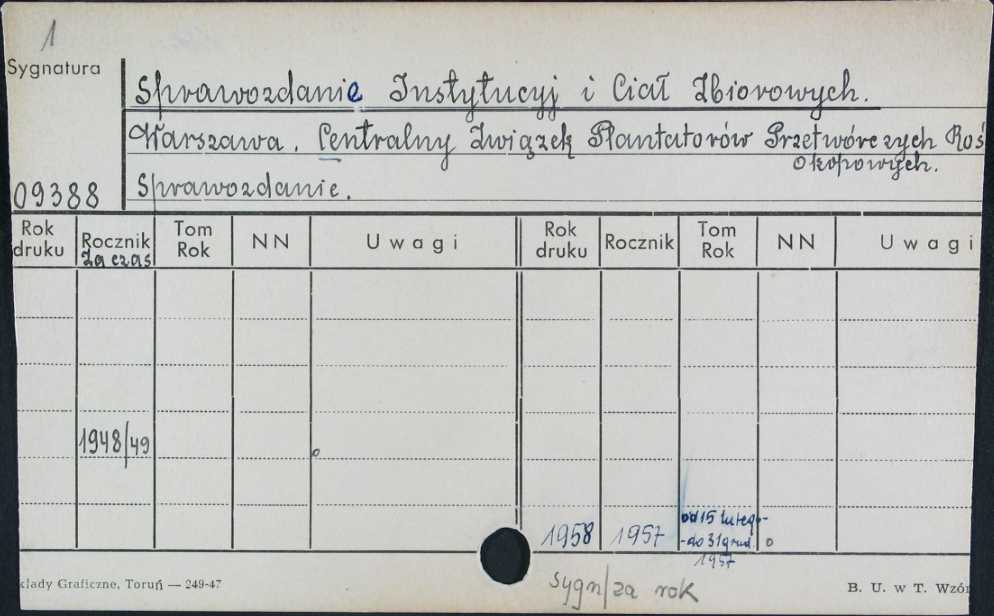 1
Sygnatura
Sprawozdanie Instytucyj i Ciał Zbiorowych.
Warszawa. Centralny Związek Plantatorów Przetwórczych Roś
okopowych.
09388
Sprawozdanie.
Rok druku Rocznik Za czas Tom Rok NN Uwagi Rok druku Rocznik Tom Rok NN Uwagi
1948/49 o
1958 1957 od 15 lutego-
-do 31 grud. o
1957
kłady Graficzne, Toruń — 249-47
sygn/za rok
B. U. w T. Wzór